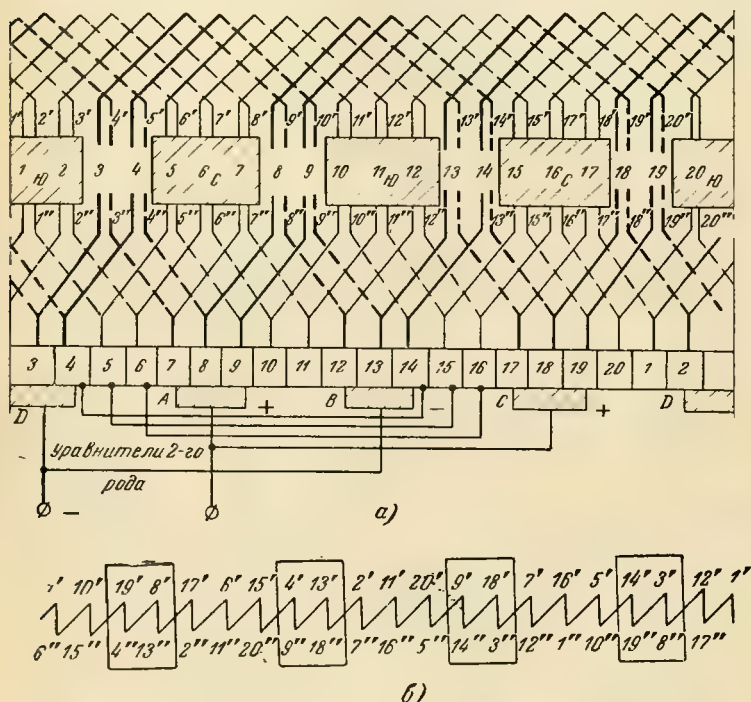 1' 2' 3' 4' 5' 6' 7' 8' 9' 10' 11' 12' 13' 14' 15' 15' 17' 18' 19' 20'
1 Ю 2 3 4 5 6 С 7 8 9 10 11 Ю 12 13 14 15 16 С 17 18 19 20 Ю
1" 2" 3" 4" 5" 6" 7" 8" 9" 10" 11" 12" 13" 15" 16" 17" 18" 19" 20"
3 4 5 6 7 8 9 10 11 12 13 14 15 16 17 18 19 20 1 2
D A + B - C + D
Уравнители 2-го
рода
-
а)
1' 10' 19' 8' 17' 6' 15' 4' 13' 2' 11' 20' 9' 18' 7' 16' 5' 14' 3' 12' 1'
6" 15" 4" 13" 2" 11" 20" 9" 18" 7" 16" 5" 14" 3" 12" 1" 10" 19" 8" 17"
б)